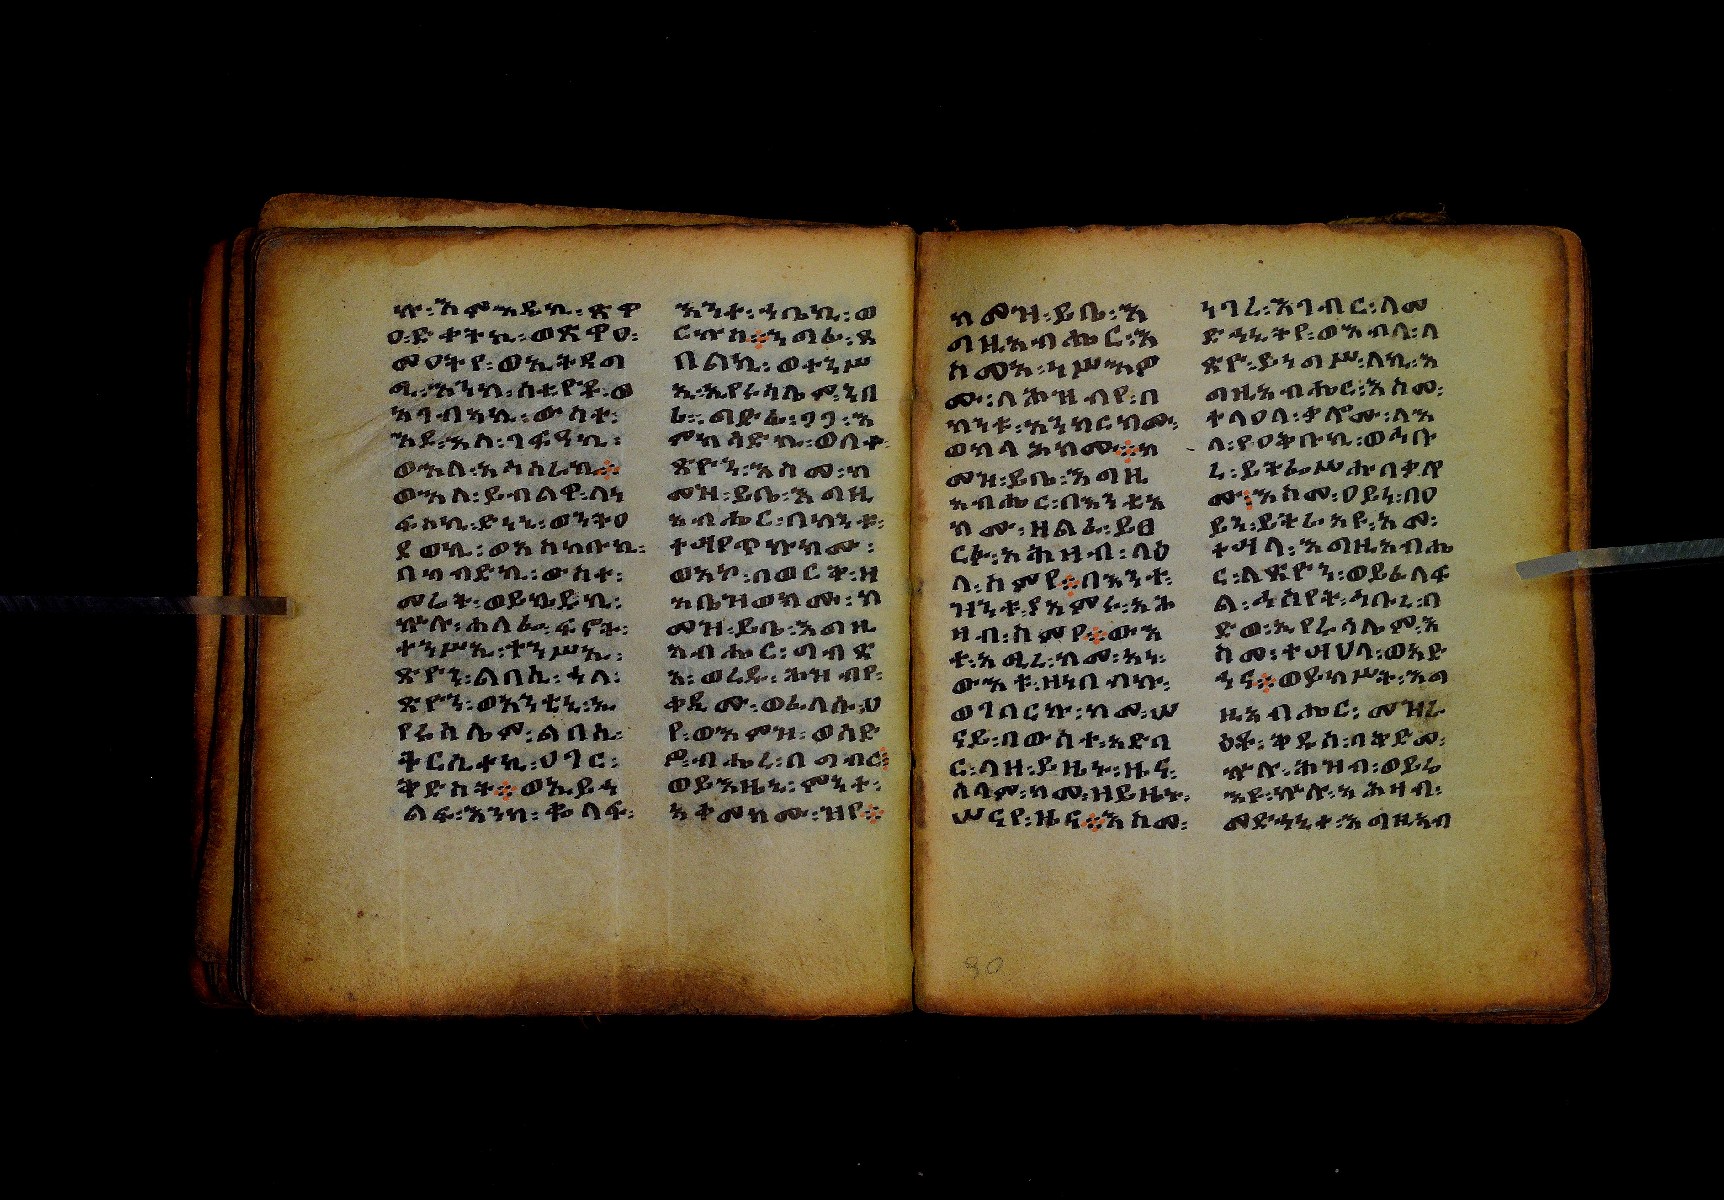 ኵ፡እምእዴኪ፡ጽዋ
ዐ፡ድቀትኪ፡ወጽዋዐ፡
መዐትየ፡ወኢትደግ
ሚ፡እንከ፡ሰቲዮቶ፡ወ
እገብኦኪ፡ውስተ፡
እደ፡እለ፡ገፍዑኪ፡
ወእለ፡አሕሰረኪ።
ወእለ፡ይብልዋ፡ለነ
ፍስኪ፡ድነኒ፡ወንትዐ
ደወኪ፡ወአስከቡኪ፡
በከብድኪ፡ውስተ፡
መሬት፡ወይከይዱኪ፡
ኵሉ፡ኀላፌ፡ፍኖት፡
ተንሥኢ፡ተንሥኢ፡
ጽዮን፡ልበሲ፡ኀይለ፡
ጽዮን፡ወአንቲኒ፡ኢ
የሩሳሌም፡ልበሲ፡
ትርሲተኪ፡ሀገር፡
ቅድስት።ወኢይት
ልፍ፡እንከ፡ቈላፍ፡
እንተ፡ኀቤኪ፡ወ
ርኩስ።ንግፊ፡ጸ
በልኪ፡ወተንሥ
ኢ፡ኢየሩሳሌም፡ንበ
ሪ፡ልድፊ፡ጋጋ፡እ
ምክሳድኪ፡ወለተ፡
ጽዮን፡እስመ፡ከ
መዝ፡ይቤ፡እግዚ
አብሔር፡በከንቱ፡
ተሣየጥኩክሙ፡
ወአኮ፡በወርቅ፡ዘ
እቤዝወክሙ፡ከ
መዝ፡ይቤ፡እግዚ
አብሔር፡ግብጽ
አ፡ወረዱ፡ሕዝብየ፡
ቀዲሙ፡ወፈለሱ፡ህ
የ፡ወእምዝ፡ወሰድ
ዎ፡ብሔረ፡በግብር፡
ወይእዜኒ፡ምንተ፡
አቀመክሙ፡ዝየ።
ከመዝ፡ይቤ፡እ
ግዚአብሔር፡እ
ስመአ፡ነሥእዎ
ሙ፡ለሕዝብየ፡በ
ከንቱ፡አንክርክሙ፡
ወከላሕክሙ።ከ
መዝ፡ይቤ፡እግዚ
አብሔር፡በእንቲአ
ክሙ፡ዘልፈ፡ይፀ
ርፉ፡አሕዛብ፡ላዕ
ለ፡ስምየ።በእንተ፡
ዝንቱ፡የአምሩ፡አሕ
ዛብ፡ስምየ።ውእ
ቱ፡አሚረ፡ከመ፡አነ፡
ውእቱ፡ዘነበብኩ፡
ወገበርኩ፡ከመ፡ሠ
ናይ፡በውስተ፡አድባ
ር፡ላዘ፡ይዜኑ፡ዜና፡
ሰላም፡ከመ፡ዘይዜኑ፡
ሠናየ፡ዜና።እስመ፡
ነገረ፡እገብር፡ለመ
ድኀኒትየ፡ወእብላ፡ለ
ጽዮ፡ይነግሥ፡ለኪ፡እ
ግዚአብሔር፡እስመ፡
ተለዐለ፡ቃሎሙ፡ለእ
ለ፡የዐቅቡኪ፡ወኅቡ
ረ፡ይትፌሥሑበቃሎ
ሙ፡እስመ፡ዐይነ፡በዐ
ይን፡ይትራአዩ፡አመ፡
ተሣሃለ፡እግዚአብሔ
ር፡ለጽዮን፡ወይፈለፍ
ል፡ሓሴት፡ኅቡረ፡በ
ድወ፡ኢየሩሳሌም፡እ
ስመ፡ተሣሀላ፡ወአድ
ኀና።ወይከሥት፡እግ
ዚአብሔር፡መዝራ
ዕቶ፡ቅዱስ፡በቅድመ፡
ኵሉ፡ሕዝብ፡ወይሬ
እዩ፡ኵሉ፡አሕዛብ፡
መድኀኒተ፡እግዚአብ
90